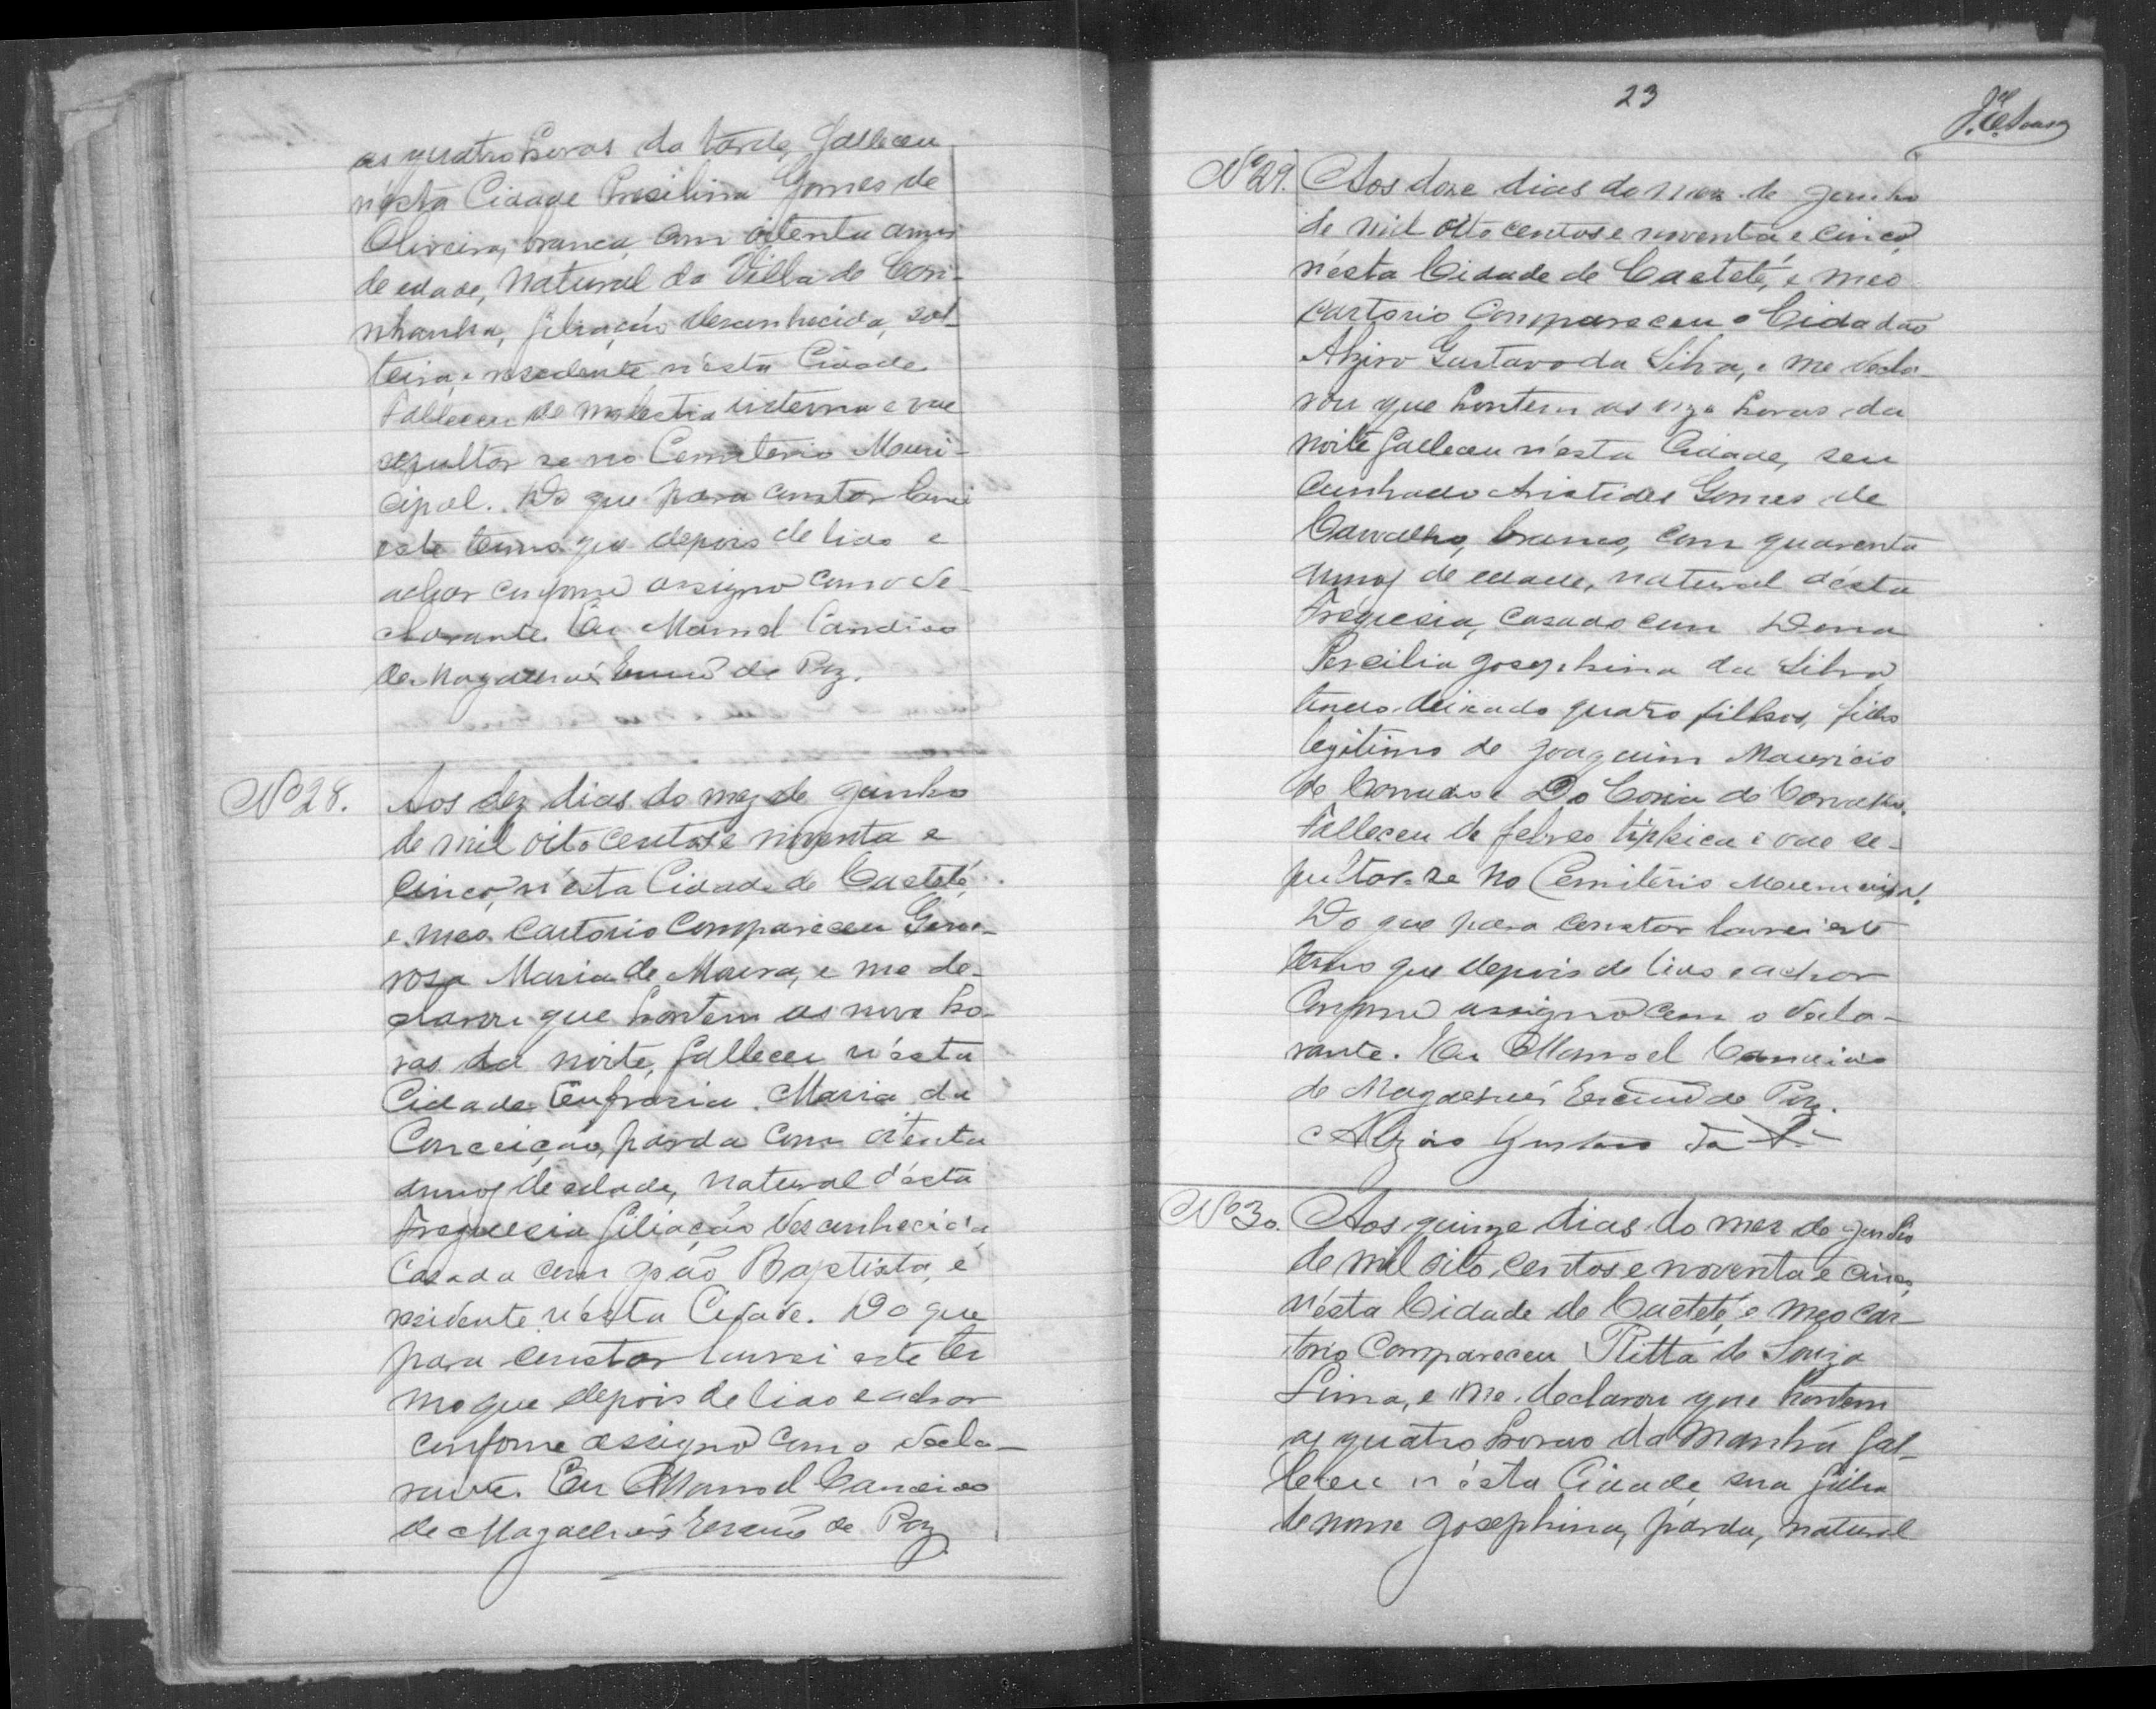 as quatro horas da tarde, falleceu
n'ésta Cidade Presilina Gomes de
Oliveira, branca, com oitenta annos
de edade, natural da Villa de Cari-
nhanha, filiação desconhecida, sol-
teira, e residente n'ésta Cidade.
Falleceu de molestia interna e vae
sepultar se no Cemiterio Muni-
cipal. Do que para constar lavrei
este termo que depois de lido e
achar conforme assigno com o de-
clarante. Eu Manoel Candido
de Magalhães Escrivão de Paz.
Nº 28. Aos dez dias do mez de Junho
de mil oito centos e noventa e
cinco, n'ésta Cidade de Caeteté,
e meo Cartorio Compareceu Gene-
rosa Maria de Moura, e me de-
clarou que hontem as nove ho-
ras da noite, falleceu n'ésta
Cidade Eufrasia Maria da
Conceição, párda com oitenta
annos de edade, natural d'ésta
Freguesia filiação desconhecida,
Casada com João Baptista, e
residente n'ésta Cidade. Do que
para constar lavrei este ter
mo que depois de lido e achar
conforme assigno com o decla-
rante. Eu Manoel Candido
de Magalhães Escrivão de Paz
23
Nº 29. Aos doze dias do mez de Junho
de mil oito centos e noventa e cinco,
n'ésta Cidade de Caeteté, e meo
cartorio Compareceu o Cidadão
Alziro Gustavo da Silva, e me decla-
rou que hontem as onze horas da
noite falleceu n'ésta Cidade, seu
Cunhado Aristides Gomes de
Carvalho, branco, com quarenta
annos de edade, natural d'ésta
Freguesia, casado com Dona
Percilia Josephina da Silva
tendo deixado quatro filhos, filho
legitimo de Joaquim Mauricio
de Carvalho Falleceu de febres tiphica e vae se-
pultar-se no Cemitério Municipal.
Do que para constar lavrei este
termo que depois de lido e achar
Conforme assigno com o decla-
rante. Eu Manoel Candido
de Magalhães Escrivão de Paz.
Alziro Gustavo da Sª
Nº 30. Aos quinze dias do mez de Junho
de mil oito centos e noventa e cinco,
n'ésta Cidade de Caeteté, e meo car-
torio Compareceu Ritta de Souza
Lima, e me declarou que hontem
as quatro horas da manhã fal-
leceu n'ésta Cidade sua filha
de nome Josephina, párda, natural